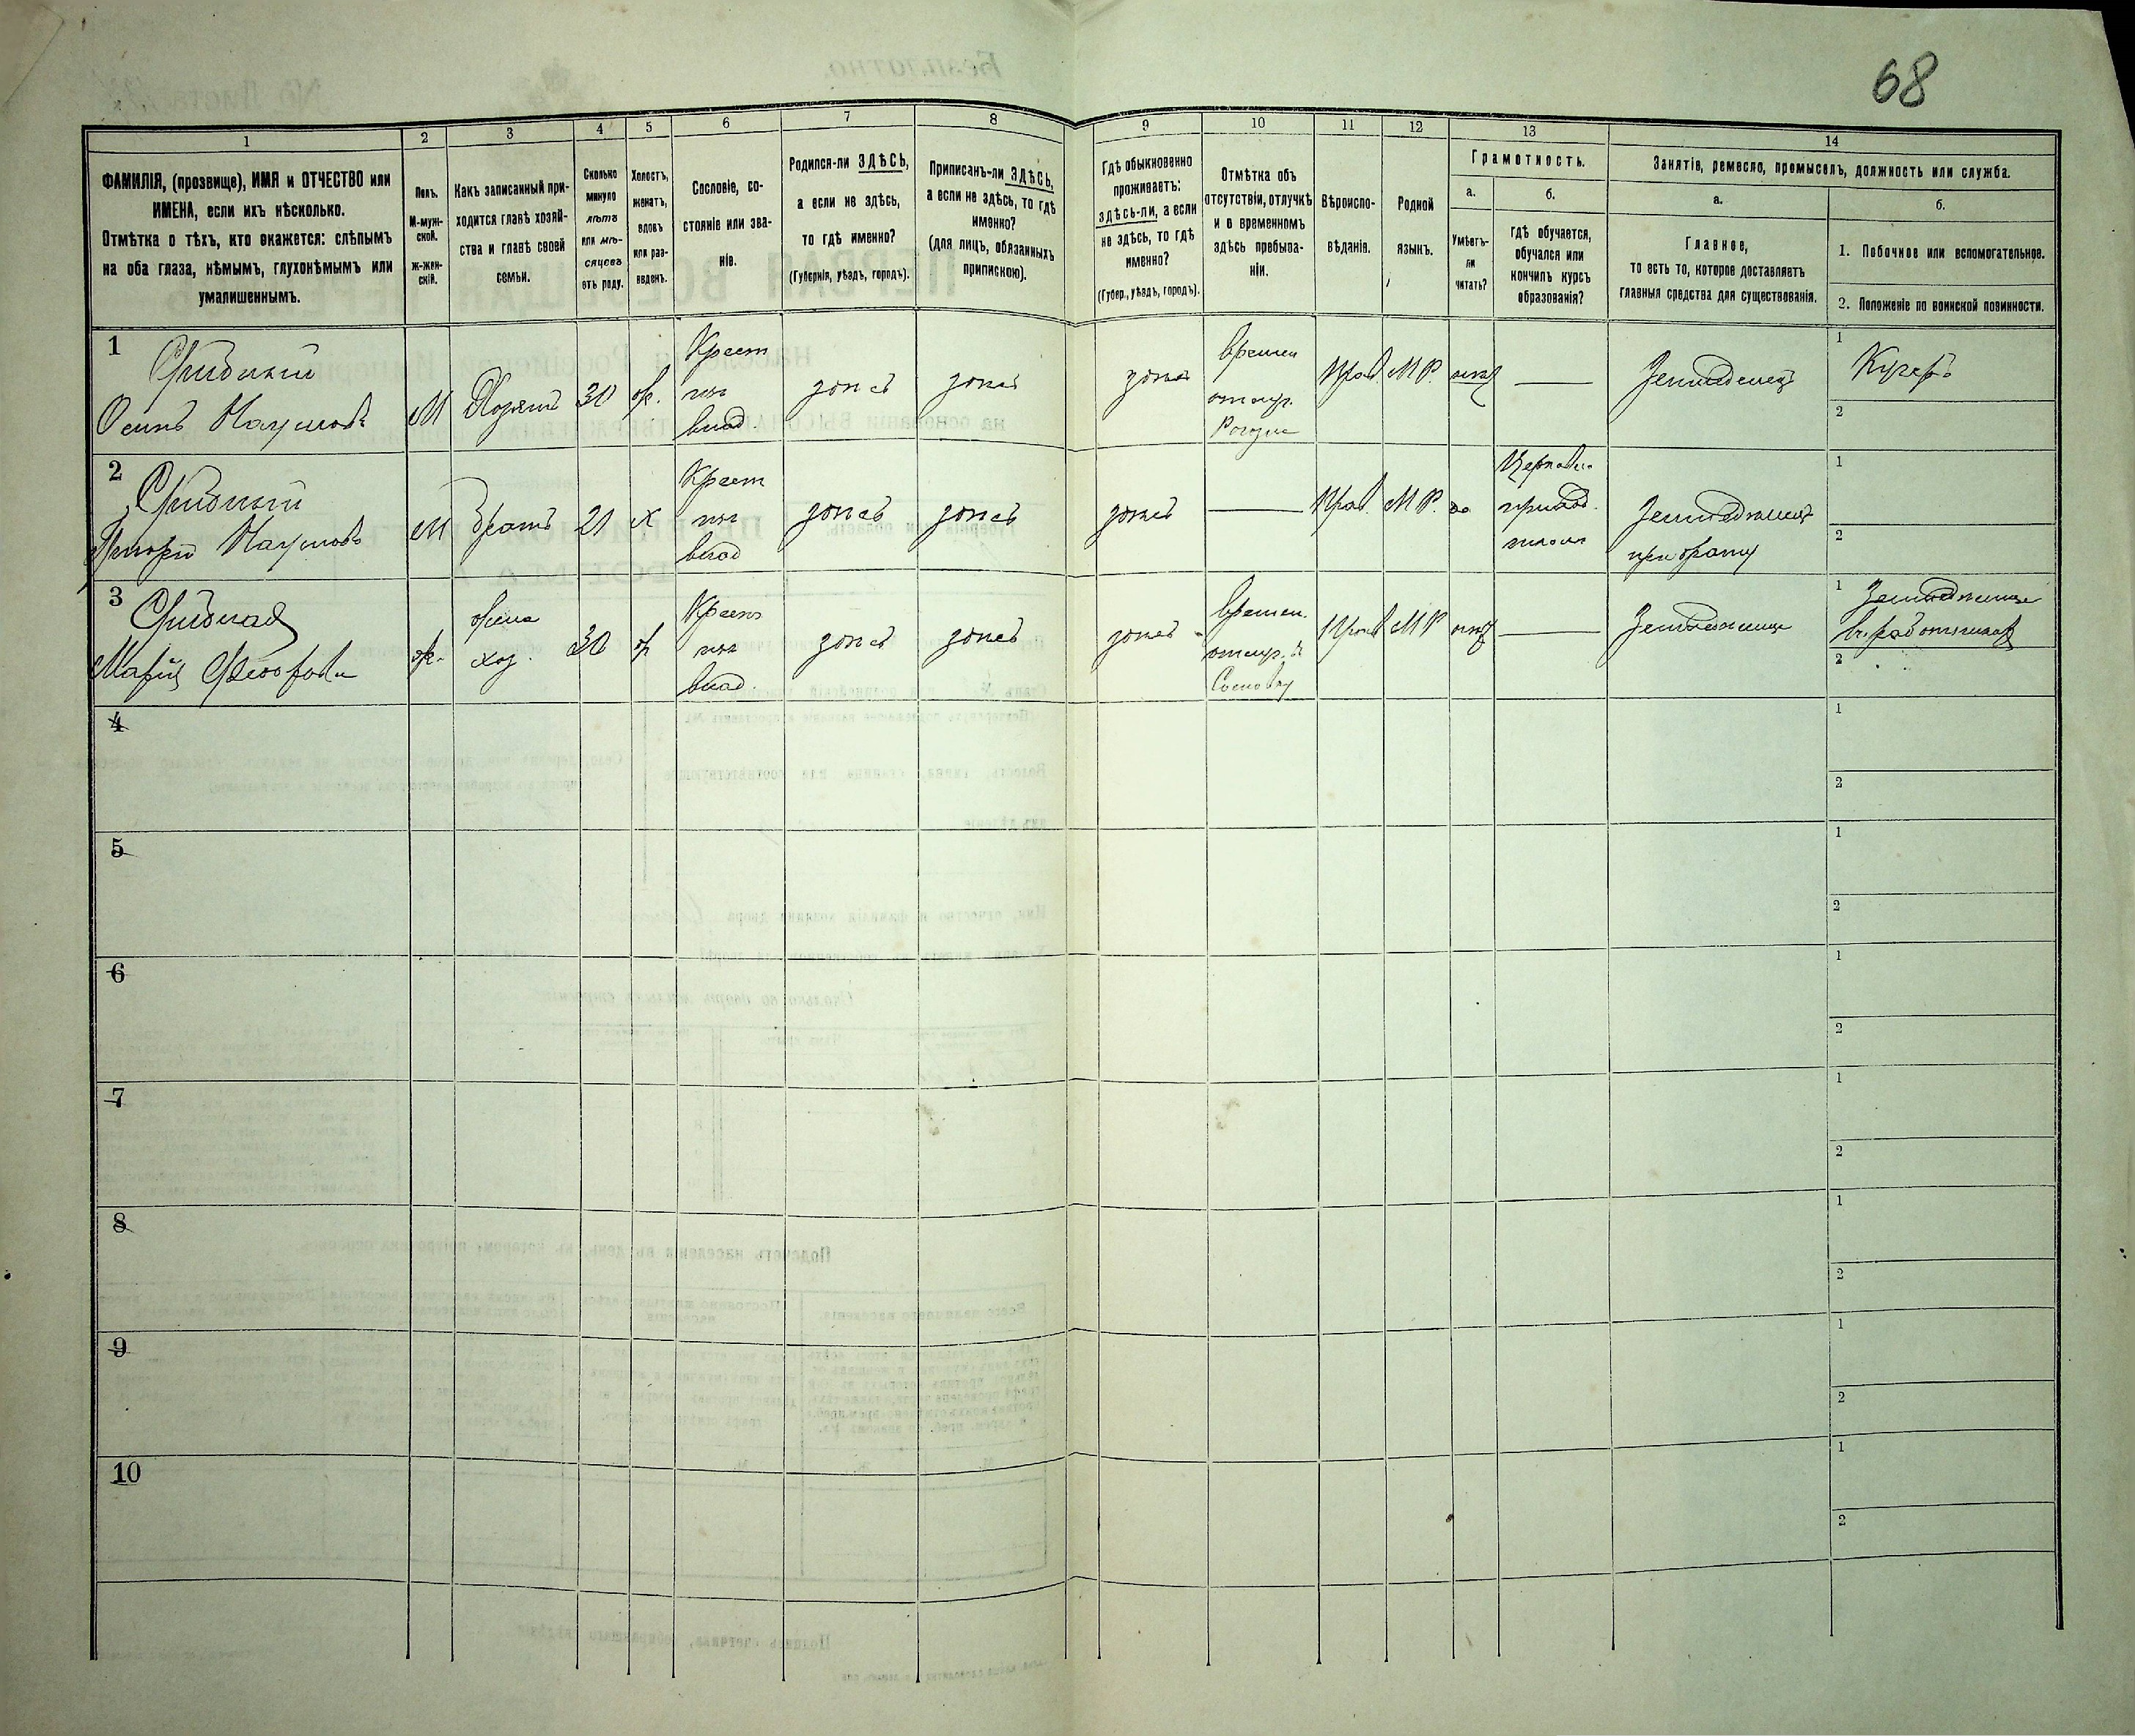 68
1 2 3 4 5 6 7 8 9 10 11 12 13 14
ФАМИЛІЯ, (прозвище), ИМЯ и ОТЧЕСТВО или
ИМЕНА, если ихъ нѣсколько.
Отмѣтка о тѣхъ, кто окажется: слѣпымъ
на оба глаза, нѣмымъ, глухонѣмымъ или
умалишеннымъ.
Полъ.
М-муж-
ской.
Ж-жен-
скій.
Какъ записанный при-
ходится главѣ хозяй-
ства и главѣ своей
семьи.
Сколько
минуло
лѣтъ
или мѣ-
сяцевъ
отъ роду.
Холостъ,
женатъ,
вдовъ
или раз-
веденъ.
Сословіе, со-
стояніе или зва-
ніе.
Родился-ли ЗДѢСЬ,
а если не здѣсь,
то гдѣ именно?
(Губернія, уѣздъ, городъ).
Приписанъ-ли ЗДѢСЬ,
а если не здѣсь, то гдѣ
именно?
(для лицъ, обязанныхъ
припискою).
Гдѣ обыкновенно
проживаетъ:
здѣсь-ли, а если
не здѣсь, то гдѣ
именно?
(Губер., уѣздъ, городъ).
Отмѣтка объ
отсутствіи, отлучкѣ
и о временномъ
здѣсь пребыва-
ніи.
Вѣроиспо-
вѣданіе.
Родной
языкъ.
Грамотность.
а.
Умѣетъ-
ли
читать?
б.
гдѣ обучается,
обучался или
кончилъ курсъ
образованія?
Занятіе, ремесло, промыселъ, должность или служба.
а.
Главное,
то есть то, которое доставляетъ
главныя средства для существованія.
б.
1. Побочное или вспомогательное.
2. Положеніе по воинской повинности.
1
Осипъ Наумовъ
М
Хозяинъ
30
ж.
Крест
изъ
влад.
здѣсь
здѣсь
здѣсь
времен
отлуч.
Прав.
М Р.
нѣтъ
Земледелецъ
1
Кучеръ
2
2
Григорій Наумовъ
М
братъ
21
х
Крест
изъ
влад
здѣсь
здѣсь
здѣсь
Прав.
М Р.
да
приход.
Земледелецъ
при братѣ
1
2
3
Марія Федорова
ж.
жена
хоз.
30
ж
Крест
изъ
влад.
здѣсь
здѣсь
здѣсь
времен.
отлуч. въ
Сосновку
Прав
М Р
нѣтъ
1
2
4
1
2
5
1
2
6
1
2
7
1
2
8
1
2
9
1
2
10
1
2